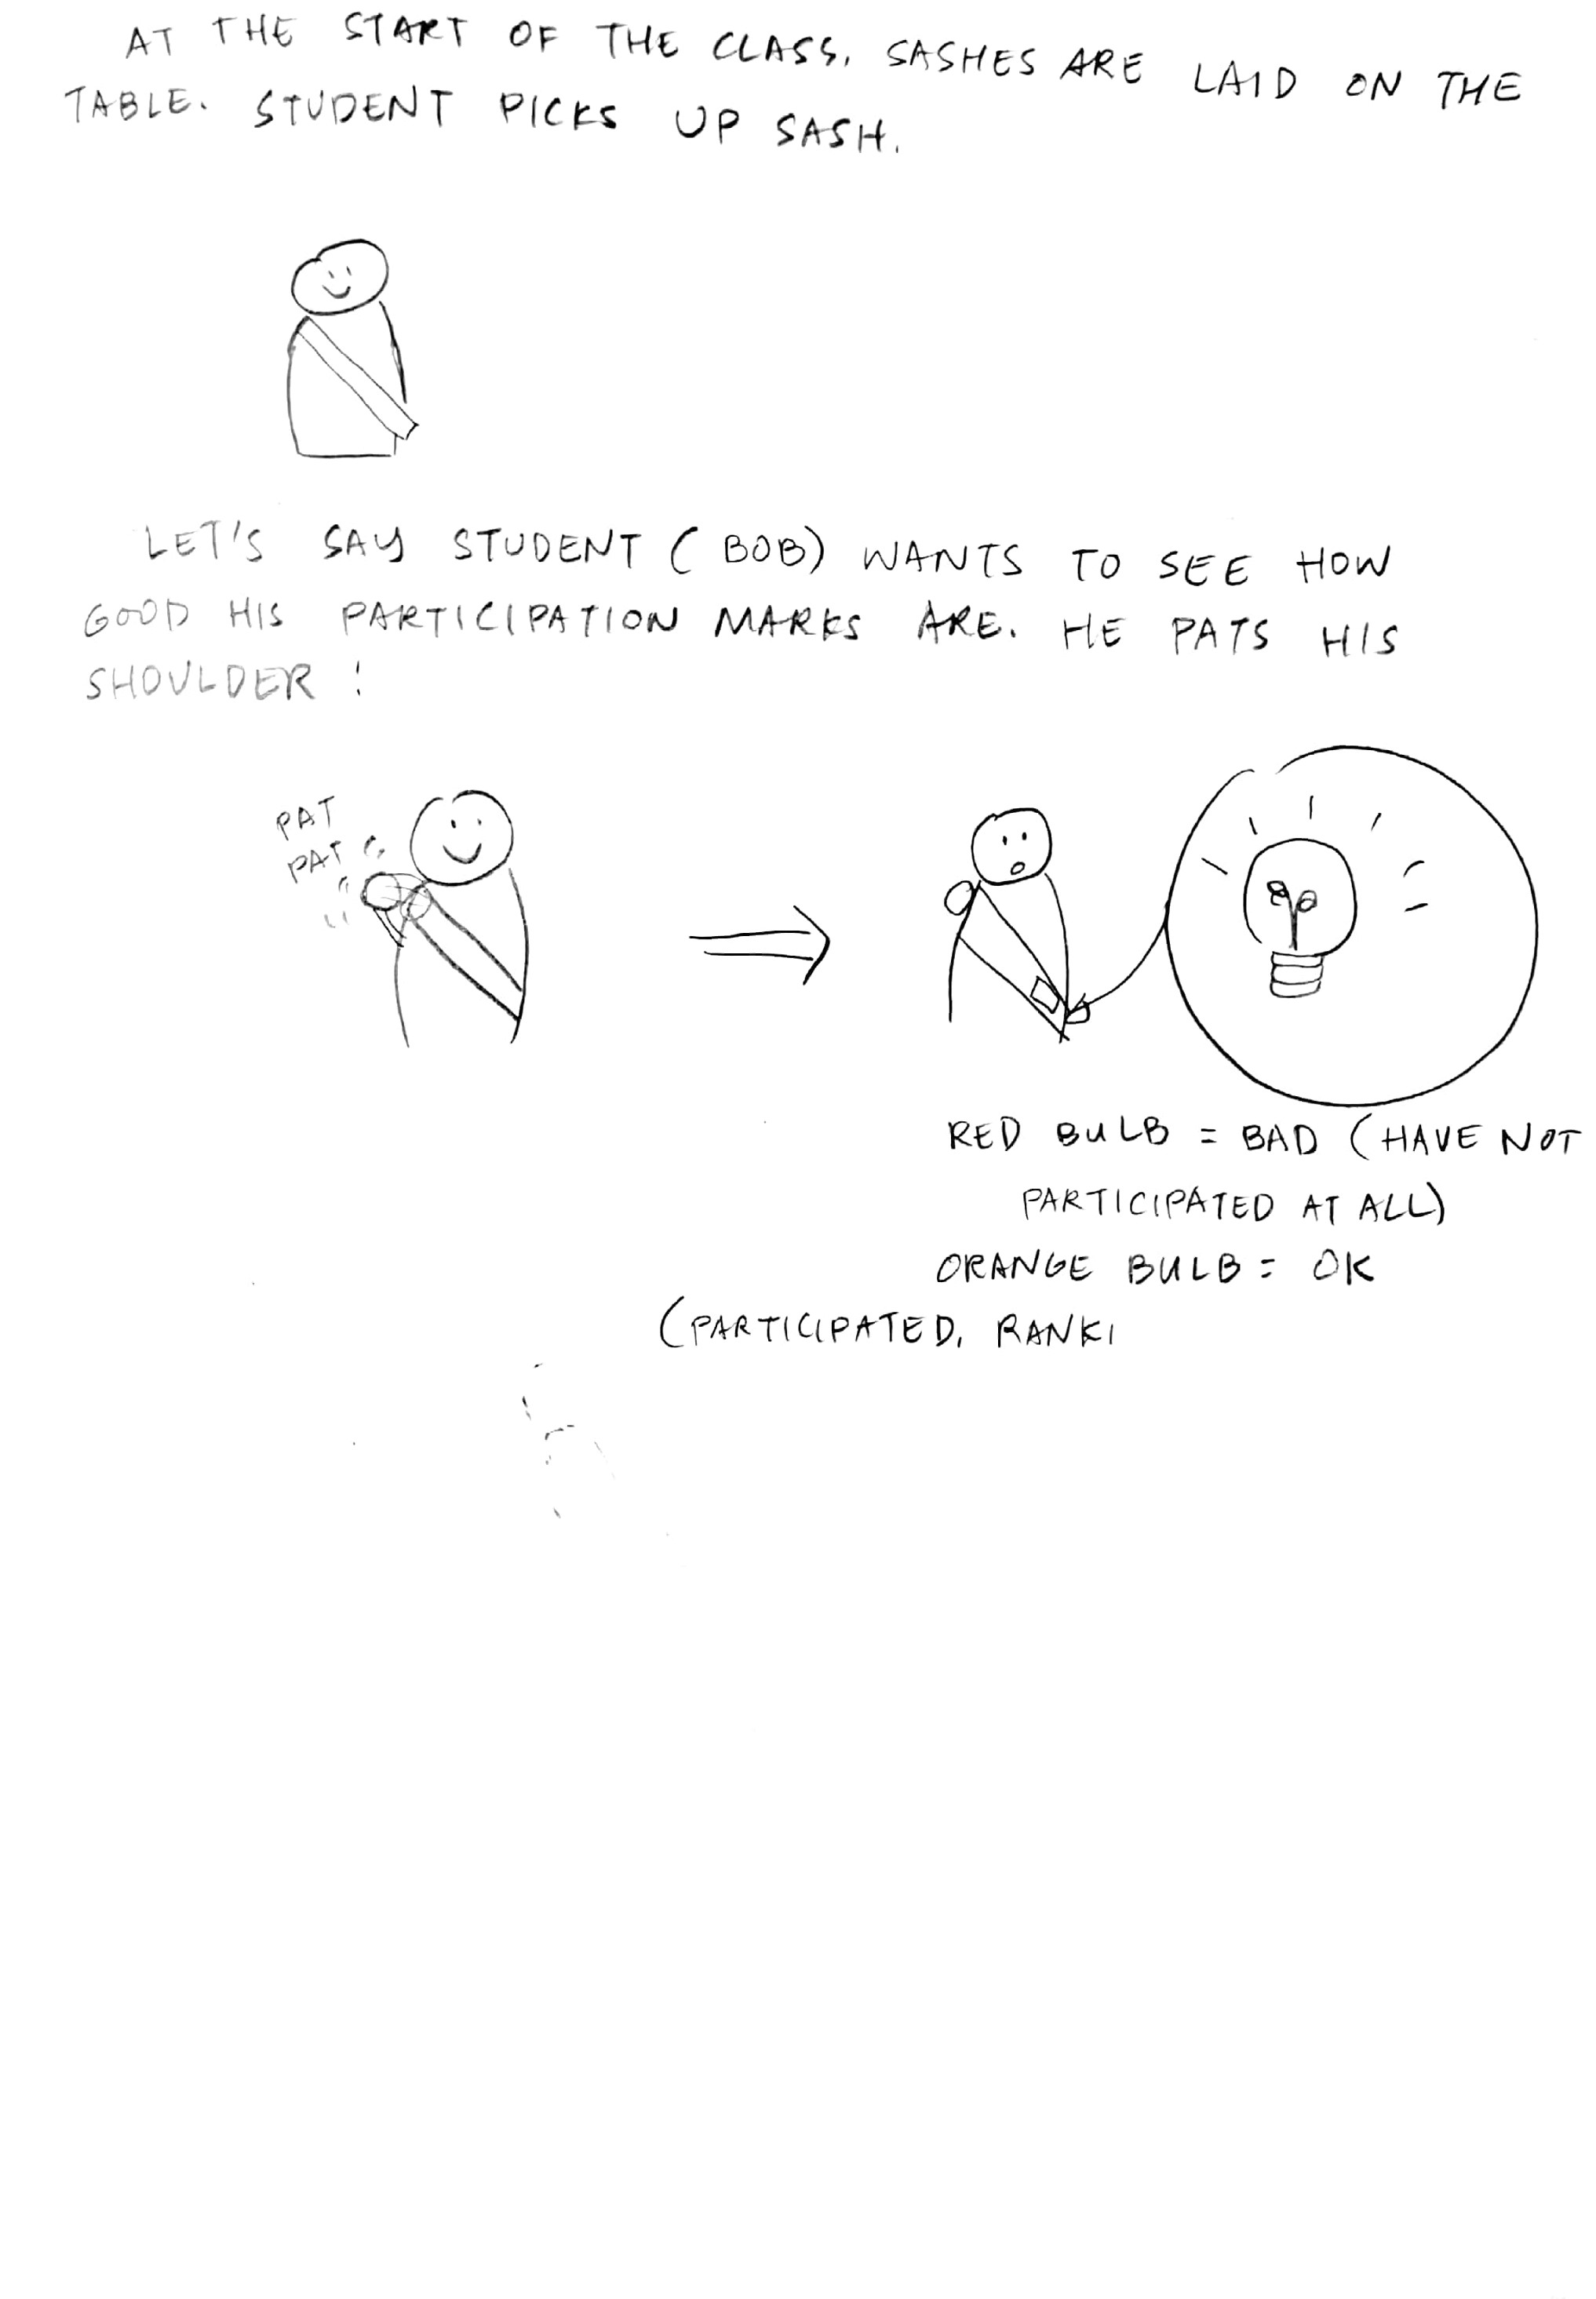 AT THE START OF THE CLASS, SASHES ARE LAID ON THE
TABLE. STUDENT PICKS UP SASH.
LET'S SAY STUDENT (BOB) WANTS TO SEE HOW
GOOD HIS PARTICIPATION MARKS ARE. HE PATS HIS
SHOULDER!
PAT
PAT
RED BULB = BAD (HAVE NOT
PARTICIPATED AT ALL)
ORANGE BULB = OK
(PARTICIPATED, RANKI